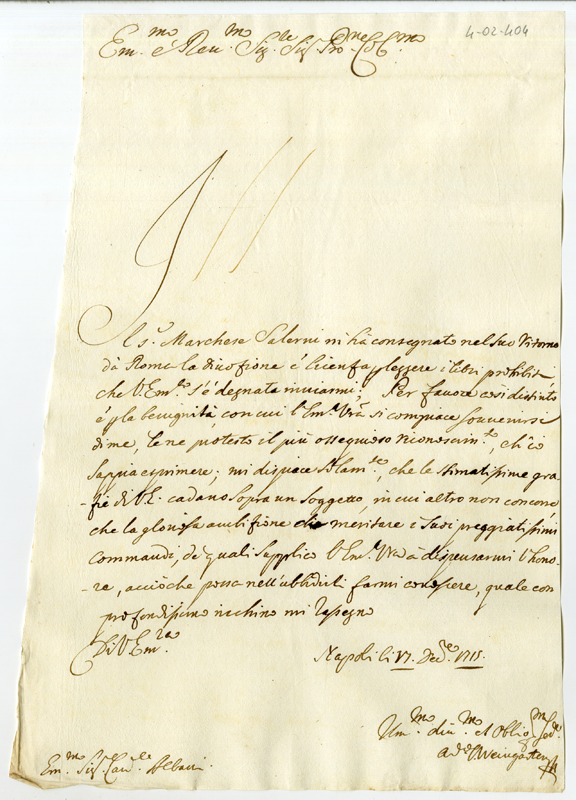 4-02-404
Em.mo é Reu.mo Sig.re Sig.r Pro.ne Col.mo
Il s.r Marchese Salerni mi hà consegnato nel suo ritorno
dà Roma la diuozione é licenza p leggere i libri prohibiti
che V. Em.za s'é degnata inuiarmi; Per fauore così distinto
é p la benignità, con cui l'Em.za Vrã si compiace souuenirsi
di me, le ne protesto il più ossequioso riconoscim.to, ch'io
sappia esprimere; mi dispiace solam.te, che le stimatissime gra-
-fie di V.E. cadano sopra un soggetto, in cui altro non concorre
che la gloriosa ambizione di meritare i suoi preggiatissimi
commandi, de quali supplico l'Em.za Vrã à dispensarmi l'hono-
-re, acciòche possa nell'ubbidirli farmi conoscere, quale con
profondissimo inchino mi rassegno
Di V. Em.za
Napoli li 17. Dec.re 1715.
Um.mo diu.mo et Oblig.mo Ser.re
A. de Weingarten
Em.mo Sig.r Car.le Albani.